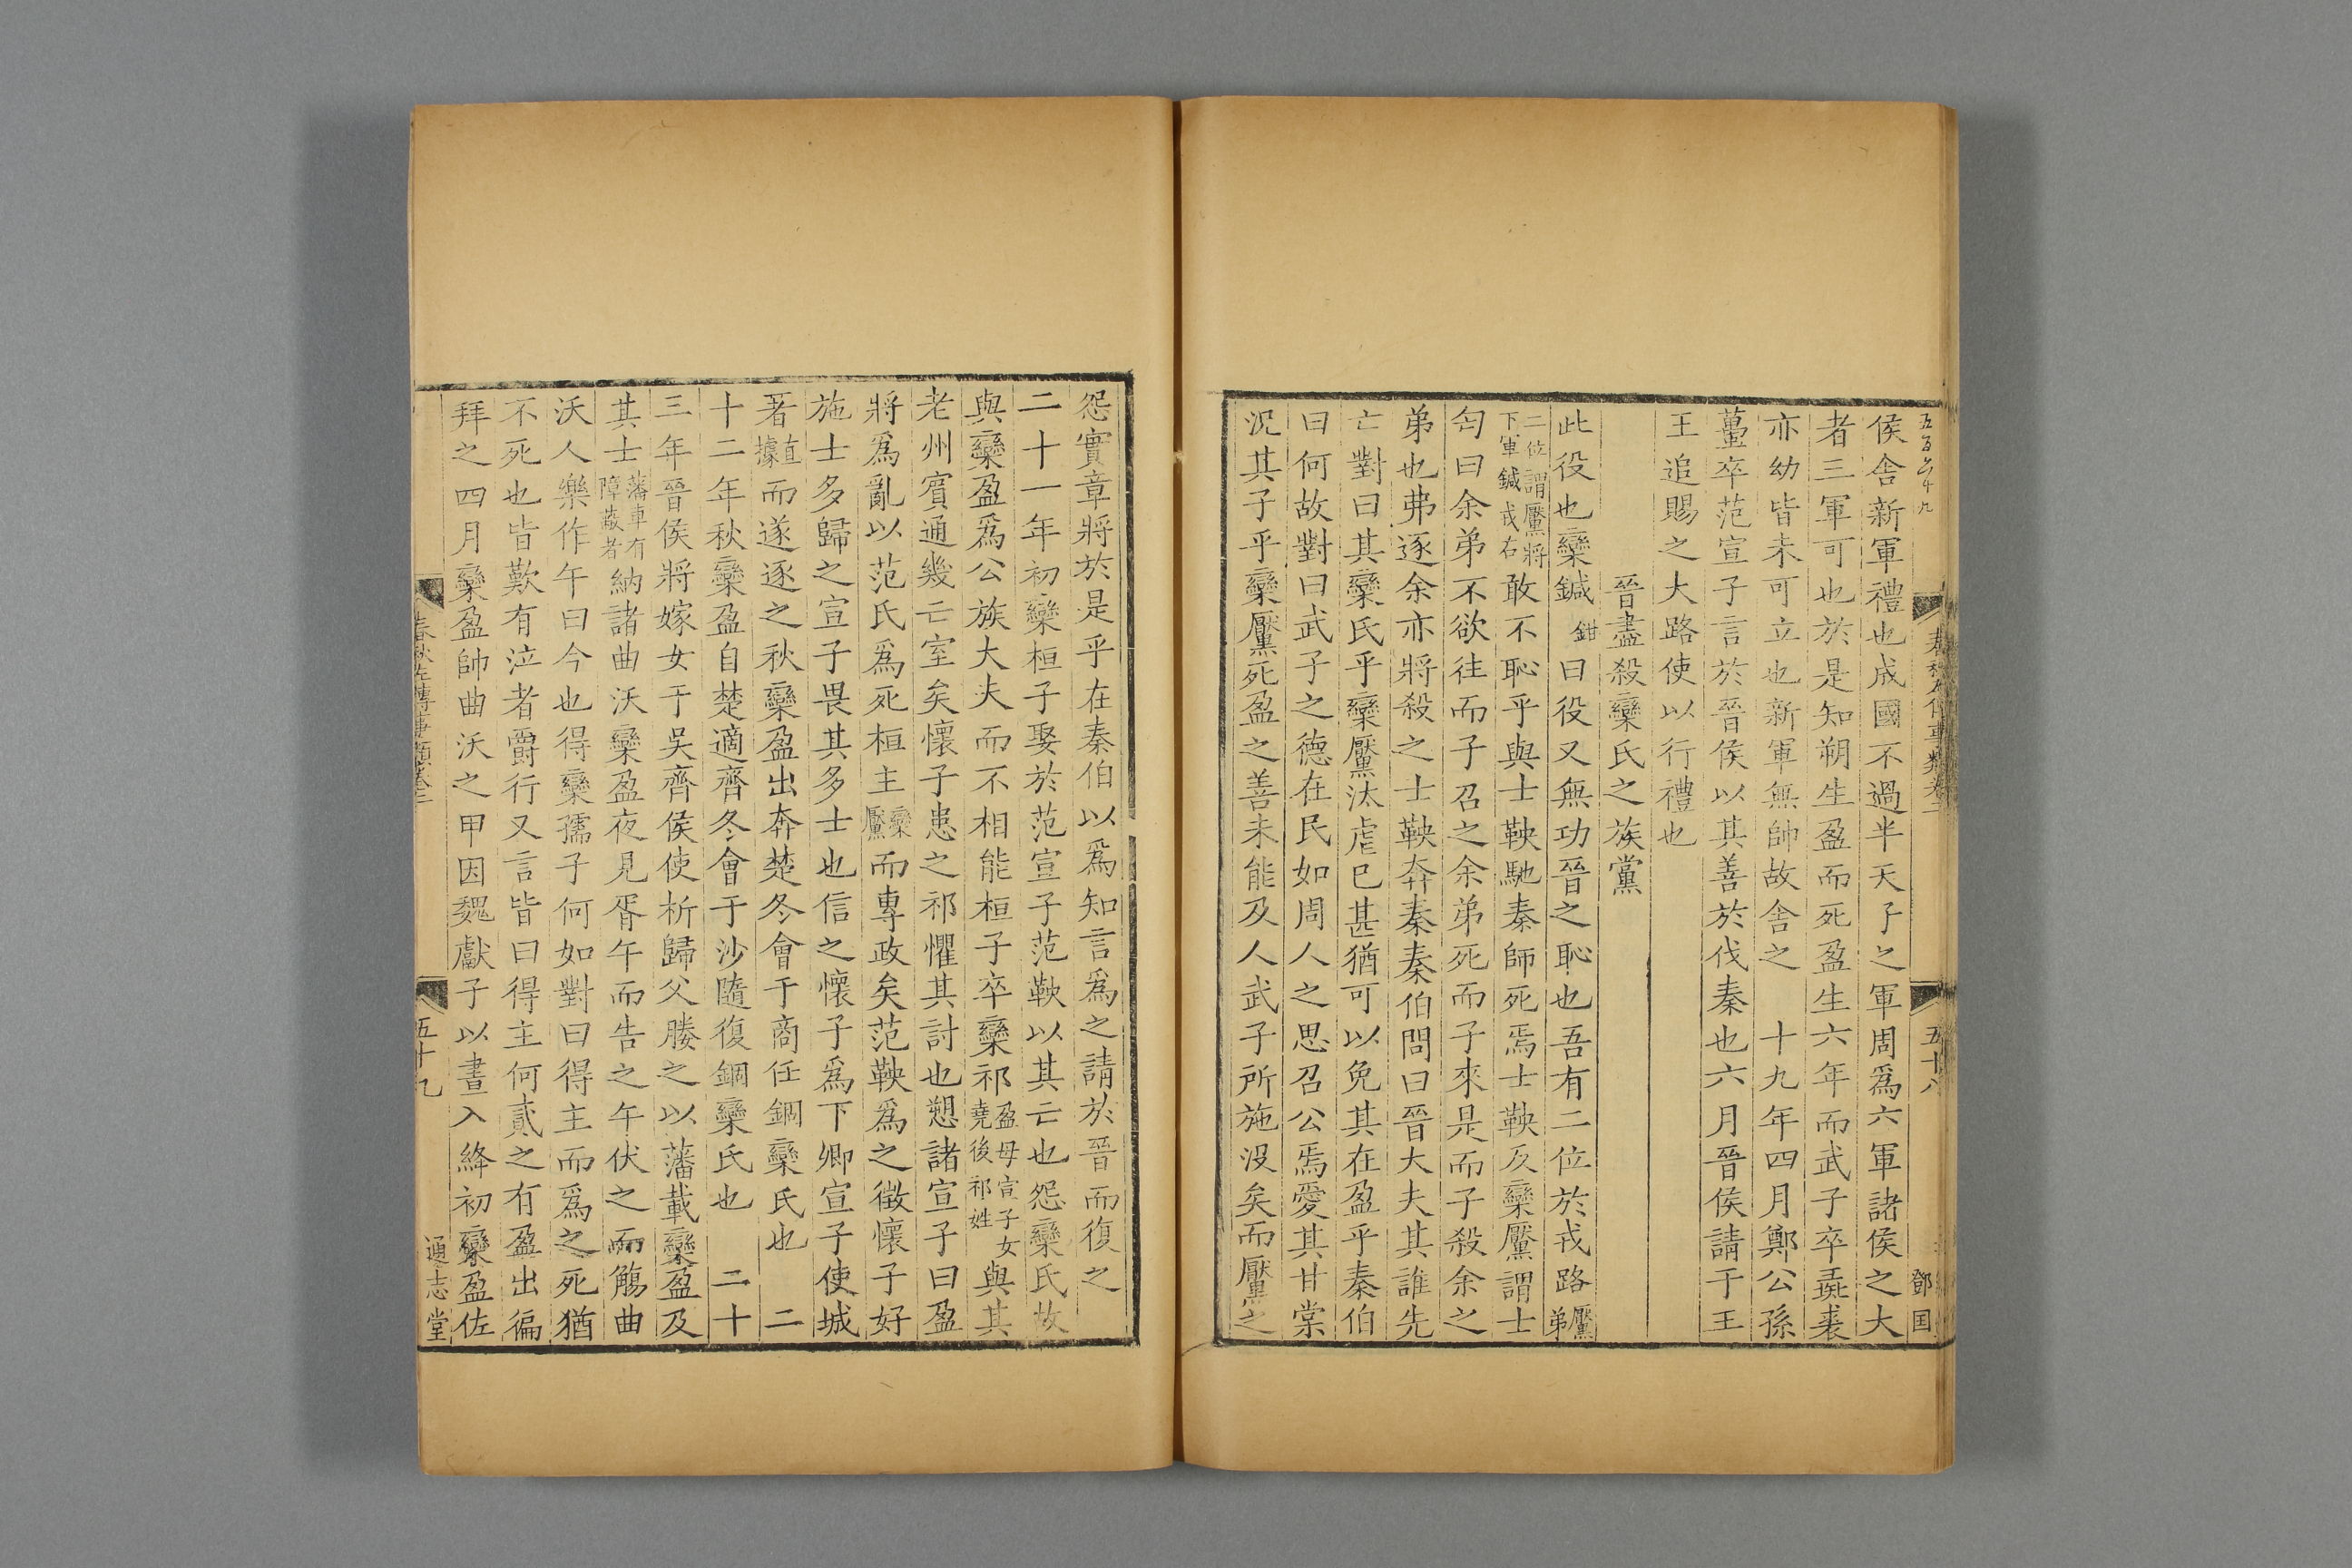 侯舎新軍禮也成國不過半天子之軍周爲六軍諸侯之大
者三軍可也於是知朔生盈而死盈生六年而武子卒彘裘
亦幼皆未可立也新軍無帥故舎之　十九年四月鄭公孫
蠆卒范宣子言於晉侯以其善於伐秦也六月晉侯請于王
王追賜之大路使以行禮也
晉盡殺欒氏之族黨
此役也欒鍼鉗曰役又無功晉之恥也吾有二位於戎路黶弟
二位謂黶將下軍鍼戎右敢不恥乎與士鞅馳秦師死焉士鞅反欒黶謂士
匄曰余弟不欲往而子召之余弟死而子來是而子殺余之
弟也弗逐余亦將殺之士鞅奔秦秦伯問曰晉大夫其誰先
亡對曰其欒氏乎欒黶汰虐已甚猶可以免其在盈乎秦伯
曰何故對曰武子之德在民如周人之思召公焉愛其甘棠
況其子乎欒黶死盈之善未能及人武子所施沒矣而黶之
五十八
鄧国
怨實章將於是乎在秦伯以爲知言爲之請於晉而復之
二十一年初欒桓子娶於范宣子范鞅以其亡也怨欒氏故
與欒盈爲公族大夫而不相能桓子卒欒祁盈母宣子女堯後祁姓與其
老州賓通幾亡室矣懷子患之祁懼其討也愬諸宣子曰盈
將爲亂以范氏爲死桓主欒黶而專政矣范鞅爲之徵懷子好
施士多歸之宣子畏其多士也信之懷子爲下卿宣子使城
著直據而遂逐之秋欒盈出奔楚冬會于商任錮欒氏也　二
十二年秋欒盈自楚適齊冬會于沙隨復錮欒氏也　二十
三年晉侯將嫁女于吳齊侯使析歸父媵之以藩載欒盈及
其士藩車有障蔽者納諸曲沃欒盈夜見胥午而告之午伏之而觴曲
沃人樂作午曰今也得欒孺子何如對曰得主而爲之死猶
不死也皆歎有泣者爵行又言皆曰得主何貳之有盈出徧
拜之四月欒盈帥曲沃之甲因魏獻子以晝入絳初欒盈佐
春秋左傳事類卷二
五十九
通志堂